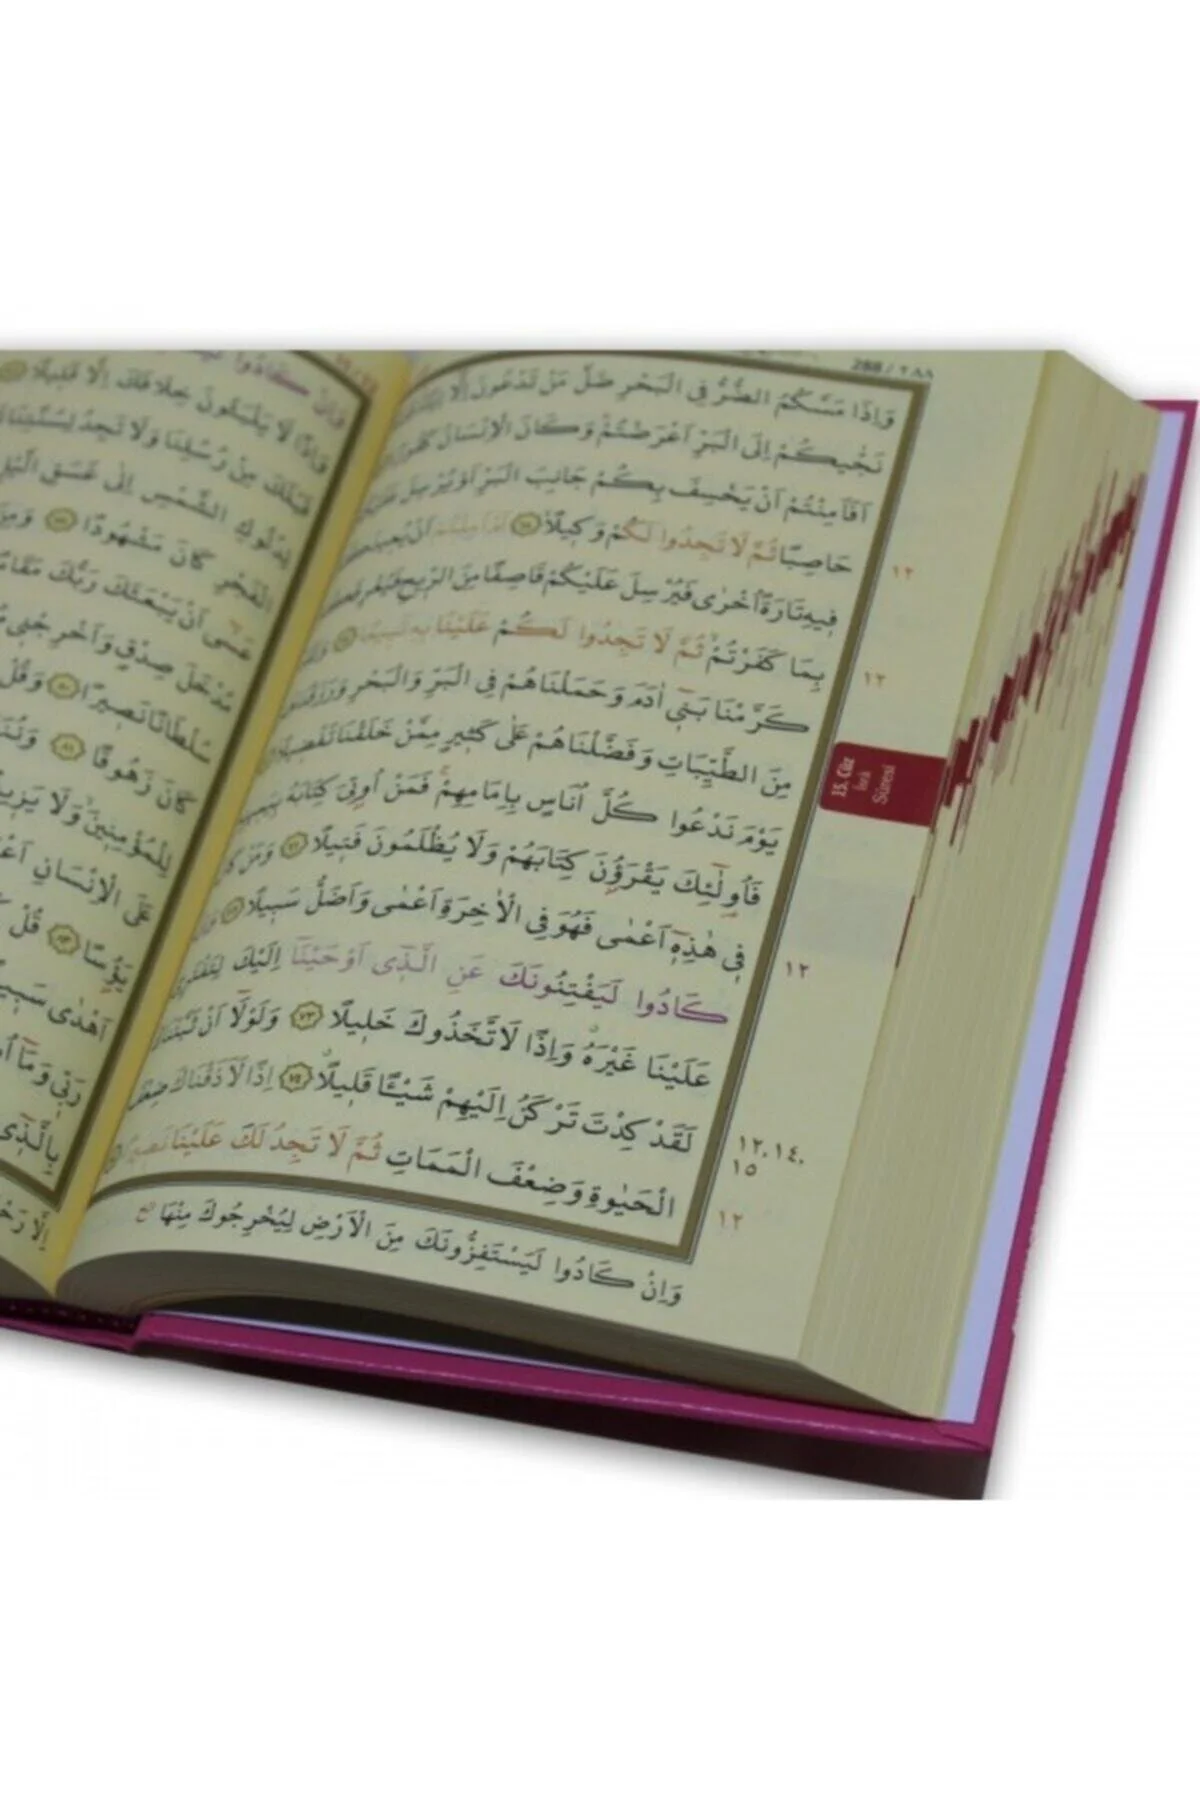 288 / ٢٨٨
وَاِذَا مَسَّكُمُ الضُّرُّ فِي الْبَحْرِ ضَلَّ مَنْ تَدْعُونَ اِلَّا
نَجّٰيكُمْ اِلَى الْبَرِّ اَعْرَضْتُمْ وَكَانَ الْاِنْسَانُ كَفُورًا
اَفَاَمِنْتُمْ اَنْ يَخْسِفَ بِكُمْ جَانِبَ الْبَرِّ اَوْ يُرْسِلَ عَلَيْكُمْ
حَاصِبًا ثُمَّ لَا تَجِدُوا لَكُمْ وَكِيلًا ۝ اَمْ اَمِنْتُمْ اَنْ يُعِيدَكُمْ
١٢
فِيهِ تَارَةً اُخْرٰى فَيُرْسِلَ عَلَيْكُمْ قَاصِفًا مِنَ الرِّيحِ فَيُغْرِقَكُمْ
بِمَا كَفَرْتُمْ ثُمَّ لَا تَجِدُوا لَكُمْ عَلَيْنَا بِهِ تَبِيعًا ۝ وَلَقَدْ
١٢
كَرَّمْنَا بَنِٓي اٰدَمَ وَحَمَلْنَاهُمْ فِي الْبَرِّ وَالْبَحْرِ وَرَزَقْنَاهُمْ
مِنَ الطَّيِّبَاتِ وَفَضَّلْنَاهُمْ عَلٰى كَثِيرٍ مِمَّنْ خَلَقْنَا تَفْضِيلًا
15. Cüz
İsrâ
Sûresi
يَوْمَ نَدْعُوا كُلَّ اُنَاسٍ بِاِمَامِهِمْ فَمَنْ اُو۫تِيَ كِتَابَهُ بِيَمِينِهِ
فَاُو۬لٰٓئِكَ يَقْرَؤُ۫نَ كِتَابَهُمْ وَلَا يُظْلَمُونَ فَتِيلًا ۝٧١ وَمَنْ كَانَ
فِي هٰذِهِٓ اَعْمٰى فَهُوَ فِي الْاٰخِرَةِ اَعْمٰى وَاَضَلُّ سَبِيلًا ۝٧٢ وَاِنْ
كَادُوا لَيَفْتِنُونَكَ عَنِ الَّذِٓي اَوْحَيْنَٓا اِلَيْكَ لِتَفْتَرِيَ
١٢
عَلَيْنَا غَيْرَهُ وَاِذًا لَاتَّخَذُوكَ خَلِيلًا ۝٧٣ وَلَوْلَٓا اَنْ ثَبَّتْنَاكَ
لَقَدْ كِدْتَ تَرْكَنُ اِلَيْهِمْ شَيْـًٔا قَلِيلًا ۝٧٤ اِذًا لَاَذَقْنَاكَ ضِعْفَ
١٢،١٤،
١٥
الْحَيٰوةِ وَضِعْفَ الْمَمَاتِ ثُمَّ لَا تَجِدُ لَكَ عَلَيْنَا نَصِيرًا
١٢
وَاِنْ كَادُوا لَيَسْتَفِزُّونَكَ مِنَ الْاَرْضِ لِيُخْرِجُوكَ مِنْهَا
وَاِنْ كَادُوا
وَاِذًا لَا يَلْبَثُونَ خِلَافَكَ اِلَّا قَلِيلًا
قَبْلَكَ مِنْ رُسُلِنَا وَلَا تَجِدُ لِسُنَّتِنَا
لِدُلُوكِ الشَّمْسِ اِلٰى غَسَقِ الَّيْلِ
الْفَجْرِ كَانَ مَشْهُودًا ۝ وَمِنَ
عَسٰٓى اَنْ يَبْعَثَكَ رَبُّكَ مَقَامًا
مُدْخَلَ صِدْقٍ وَاَخْرِجْنِي
سُلْطَانًا نَصِيرًا ۝ وَقُلْ
كَانَ زَهُوقًا ۝ وَنُنَزِّلُ
لِلْمُؤْمِنِينَ وَلَا يَزِيدُ
عَلَى الْاِنْسَانِ
يَؤُ۫سًا ۝ قُلْ
اَهْدٰى سَبِيلًا
رَبِّي وَمَٓا
بِالَّذِٓي
اِلَّا